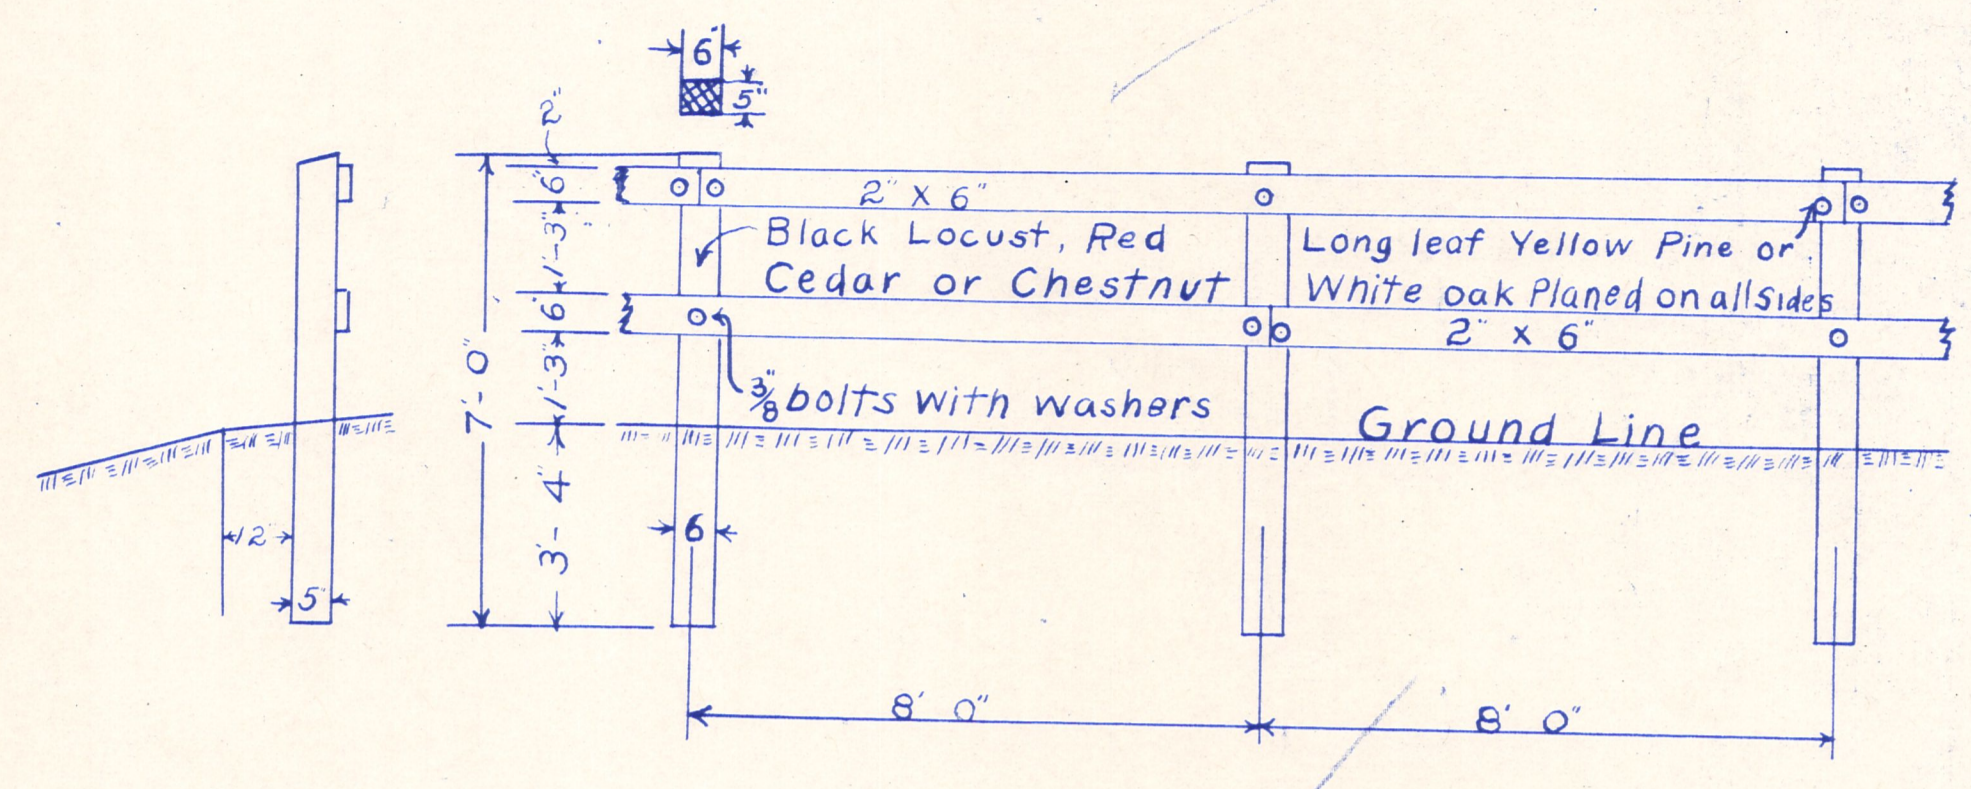 6"
5"
2"
6"
2" X 6"
1'-3"
Black Locust, Red
Cedar or Chestnut
Long leaf Yellow Pine or
White oak Planed on all Sides
6"
2" x 6"
7'-0"
1'-3"
3/8" bolts with washers
Ground Line
3'-4"
12"
6
5"
8' 0"
8' 0"